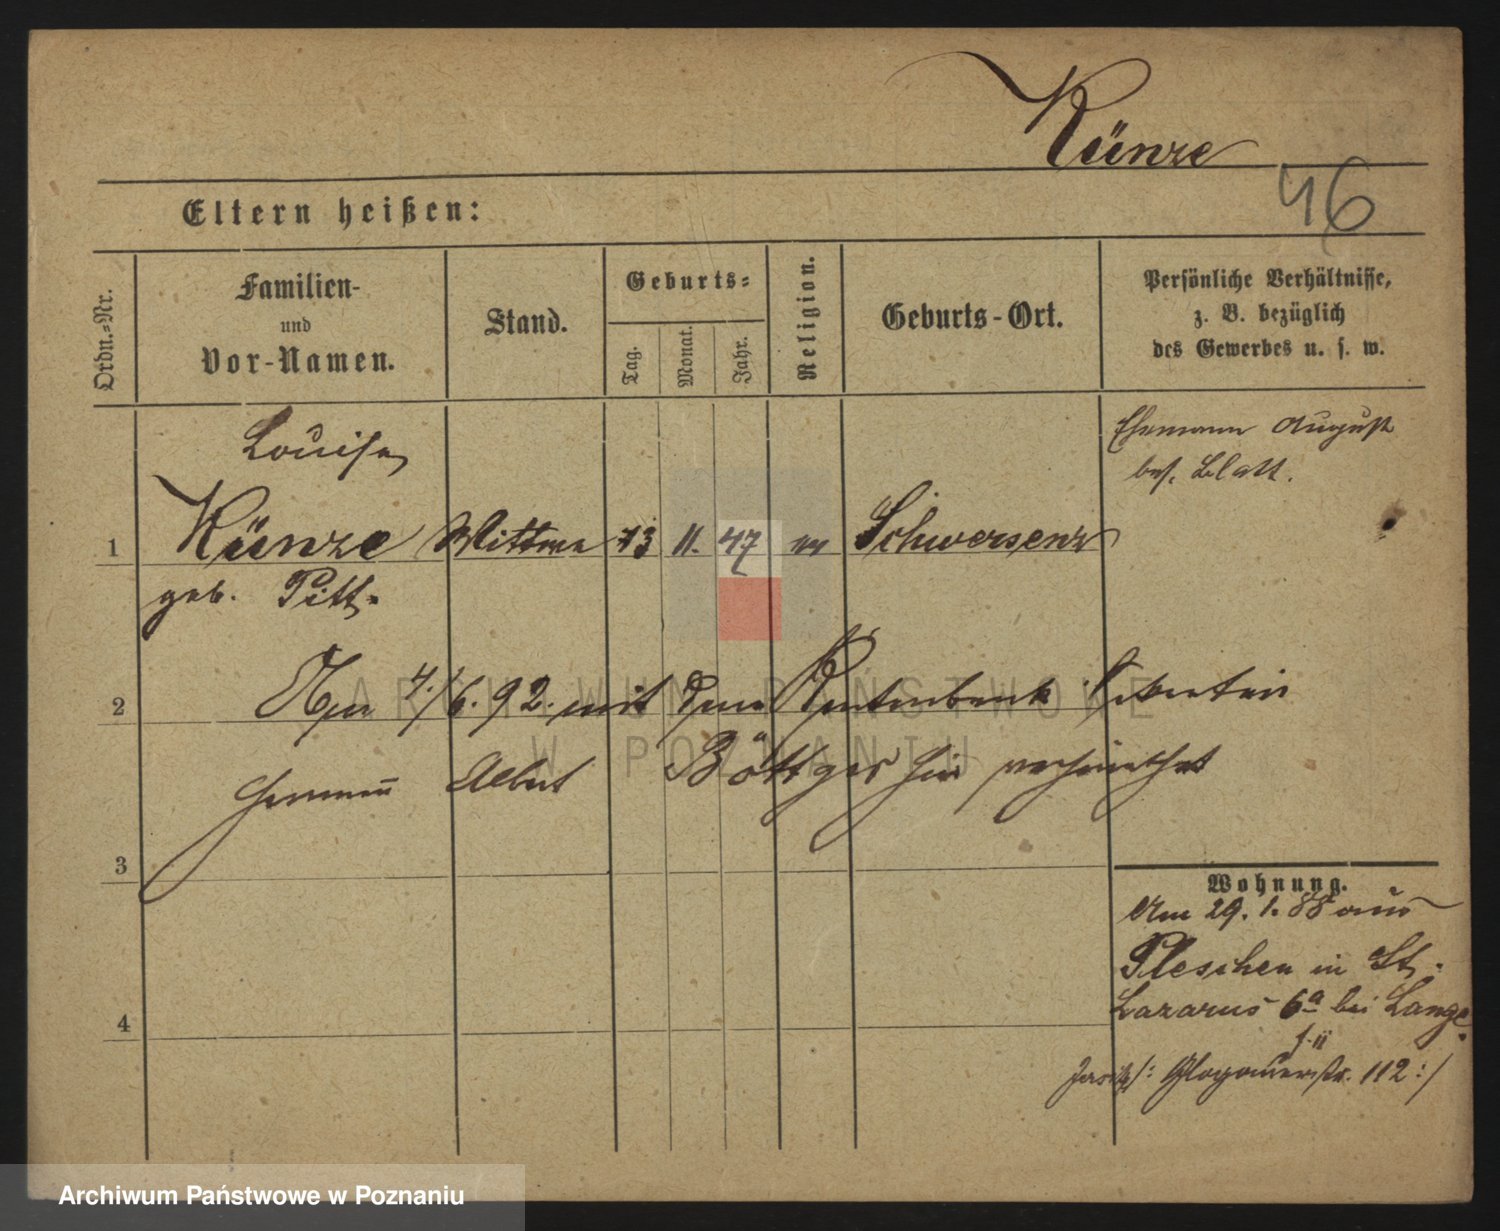 Künze
46
Eltern heißen:
Ordn.-Nr.
Familien-
und
Vor-Namen.
Stand.
Geburts-
Tag.
Monat.
Jahr.
Religion.
Geburts-Ort.
Persönliche Verhältnisse,
z. B. bezüglich
des Gewerbes u. s. w.
Louise
Ehemann August
bes. Blatt.
1 Künze Wittwe 13 11. 47 ev Schwersenz
geb. Pitt
2 4./6. 92. mit dem
Hermann Albert Böttger hier verheirathet
3
Wohnung.
Am 29. 1. 88 aus
Pleschen in St.
Lazarus 6a bei Lange
4
Glogauerstr. 112 :/
ARCHIWUM PAŃSTWOWE
W POZNANIU
Archiwum Państwowe w Poznaniu